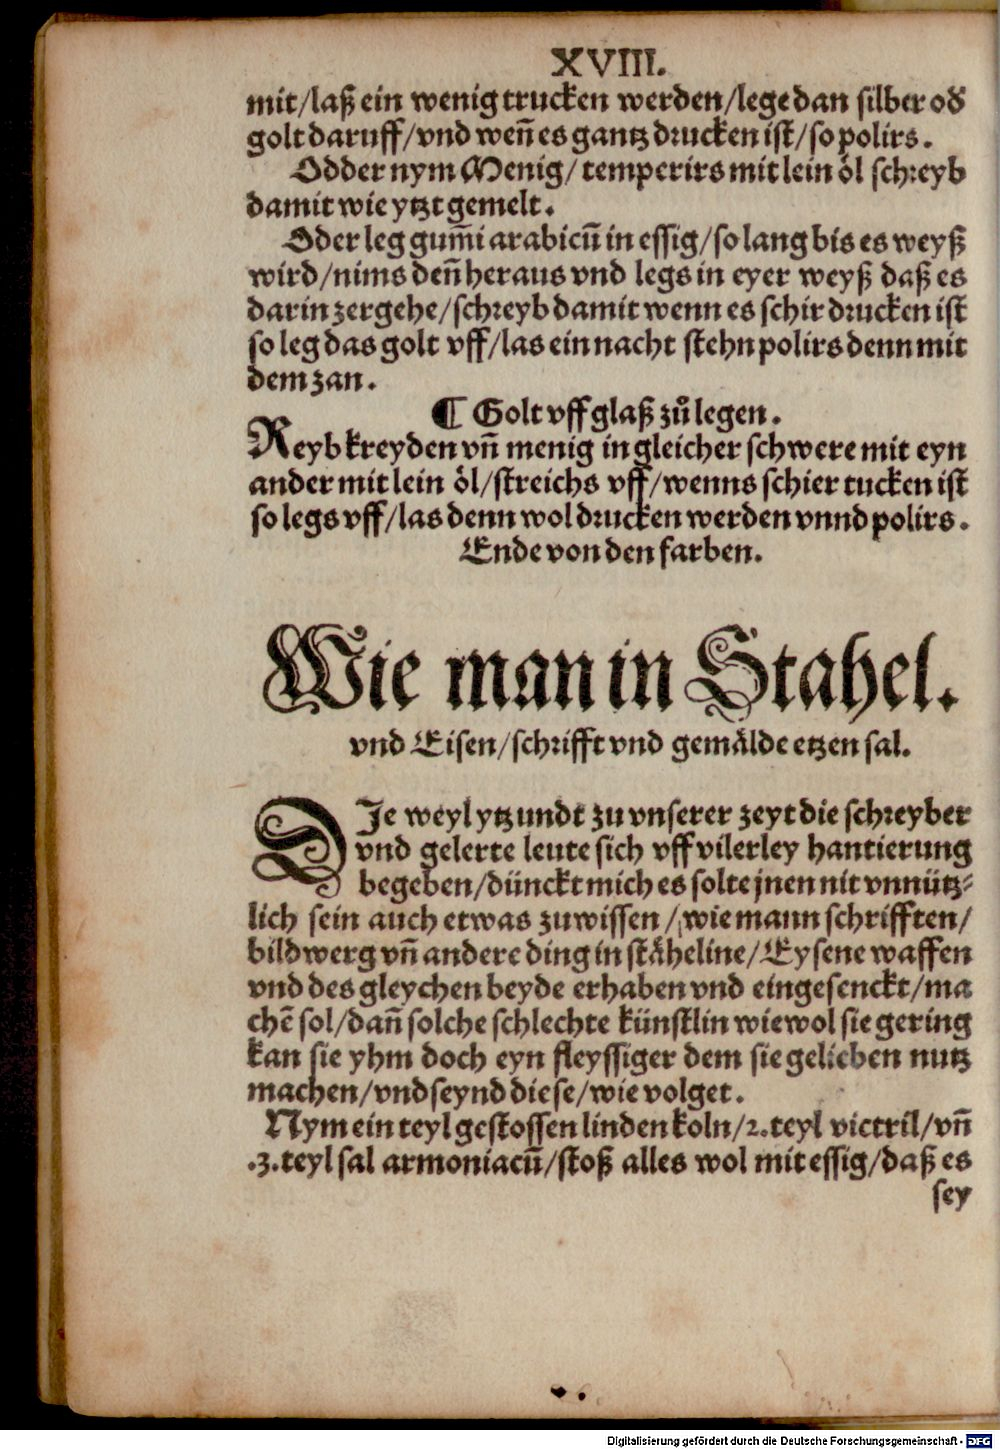 XVIII.
mit/laß ein wenig trucken werden/lege dan silber od̕
golt daruff/vnd wen̄ es gantz drucken ist/so polirs.
Odder nym Menig/ temperirs mit lein öl schreyb
damit wie ytzt gemelt.
Oder leg gum̄i arabicū in essig/so lang bis es weyß
wird/nims den̄ heraus vnd legs in eyer weyß daß es
darin zergehe/schreyb damit wenn es schir drucken ist
so leg das golt vff/las ein nacht stehn polirs denn mit
dem zan.
¶ Golt vff glaß zů legen.
Reyb kreyden vn̄ menig in gleicher schwere mit eyn
ander mit lein öl/streichs vff/wenns schier tucken ist
so legs vff/las denn wol drucken werden vnnd polirs.
Ende von den farben.
Wie man in Stahel.
vnd Eisen/schrifft vnd gemälde etzen sal.
DIe weyl ytzundt zu vnserer zeyt die schreyber
vnd gelerte leute sich vff vilerley hantierung
begeben/dünckt mich es solte jnen nit vnnütz⸗
lich sein auch etwas zuwissen/wie mann schrifften/
bildwerg vn̄ andere ding in stäheline/Eysene waffen
vnd des gleychen beyde erhaben vnd eingesenckt/ma
chē sol/dan̄ solche schlechte künstlin wiewol sie gering
kan sie yhm doch eyn fleyssiger dem sie gelieben nutz
machen/vnd seynd diese/wie volget.
Nym ein teyl gestossen linden koln/2.teyl victril/vn̄
.3.teyl sal armoniacū/stoß alles wol mit essig/daß es
sey
Digitalisierung gefördert durch die Deutsche Forschungsgemeinschaft - DFG